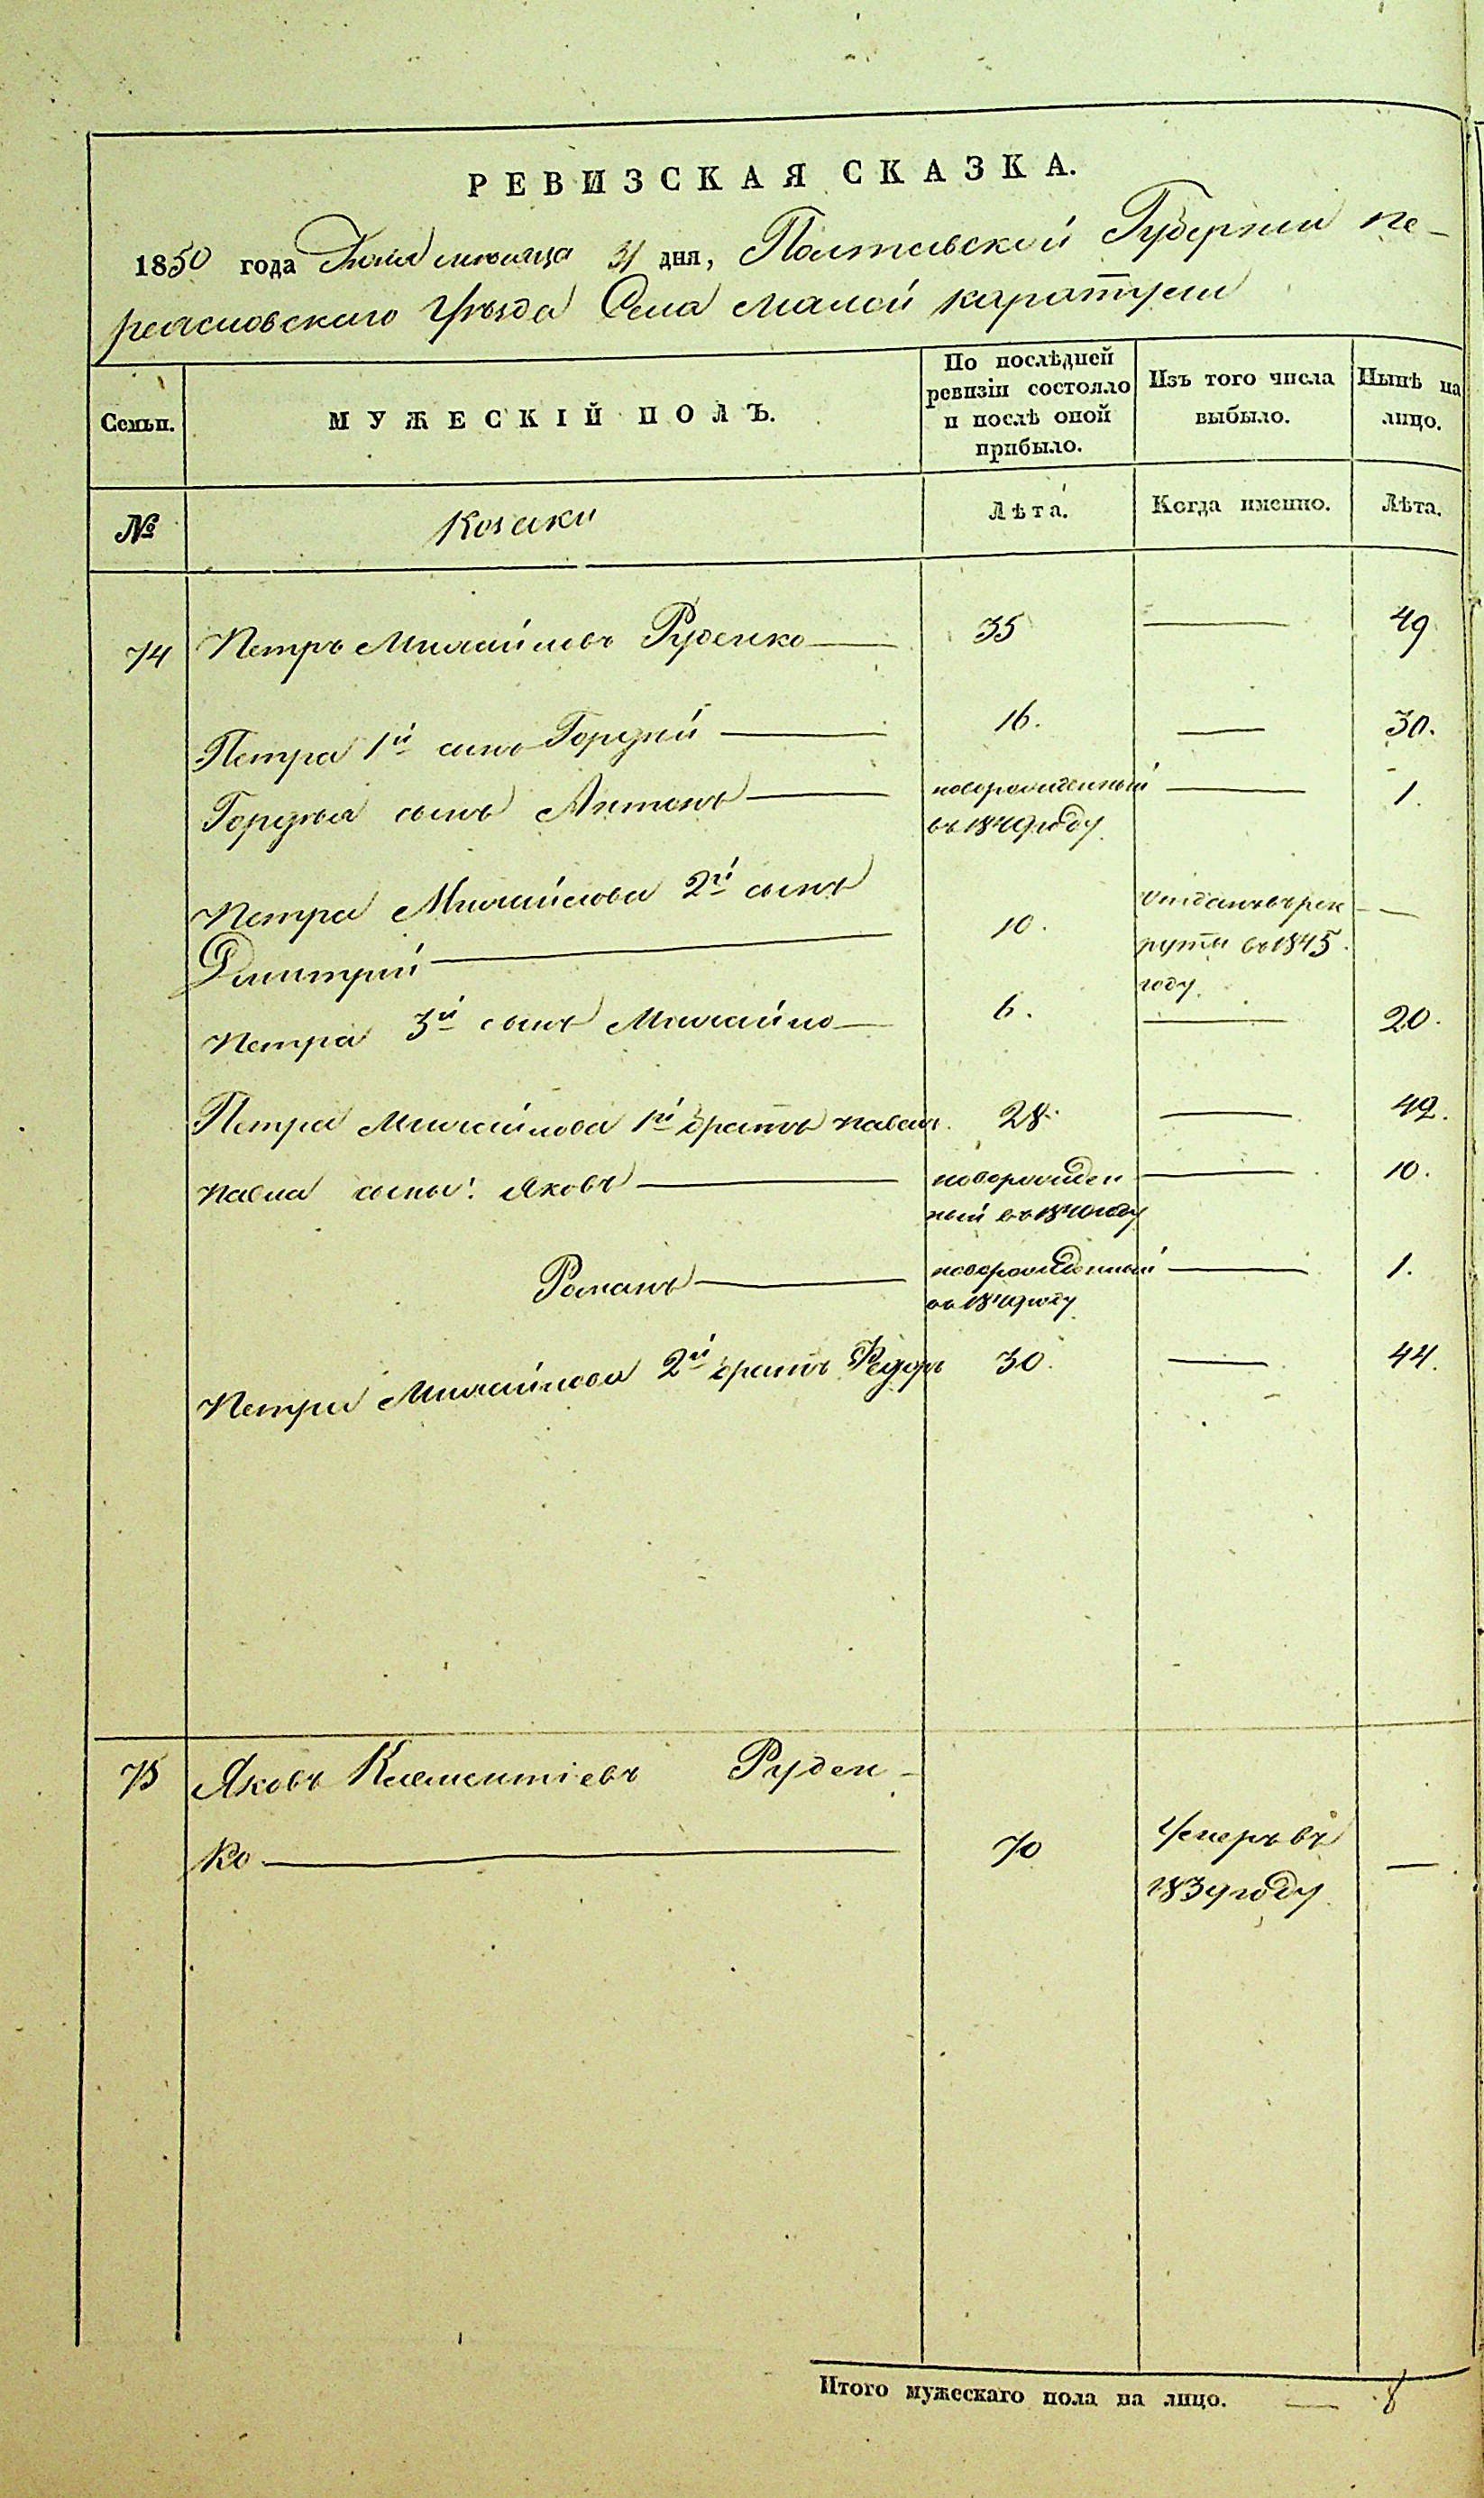 РЕВИЗСКАЯ СКАЗКА.
1850 года Июля месяца 31 дня, Полтавской Губернии Пе-
реясловскаго Уѣзда Села малой каратули
Семьи.
МУЖЕСКІЙ ПОЛЪ.
По послѣдней
ревизіи состояло
и послѣ оной
прибыло.
Изъ того числа
выбыло.
Нынѣ на
лицо.
№
Козаки
Лѣта.
Когда именно.
Лѣта.
74 Петръ Михайловъ Руденко — 35 — 49
Петра 1й сынъ Гордѣй — 16. — 30.
Гордѣя сынъ Антонъ — новорожденный — 1.
въ 1849 году
Петра Михайлова 2й сынъ
Дмитрій — 10. Отданъ въ рек —
руты въ 1845
году.
Петра 3й сынъ Михайло — 6. — 20.
Петра Михайлова 1й братъ павелъ. 28. — 42.
павла сыны: Яковъ — новорожден — 10.
ный въ 1840 году
Романъ — новорожденный — 1.
въ 1849 году
Петра Михайлова 2й братъ Федоръ 30. — 44.
75 Яковъ Климентіевъ Руден-
ко — 70 Умеръ въ —
1839 году
Итого мужескаго пола на лицо. — 8